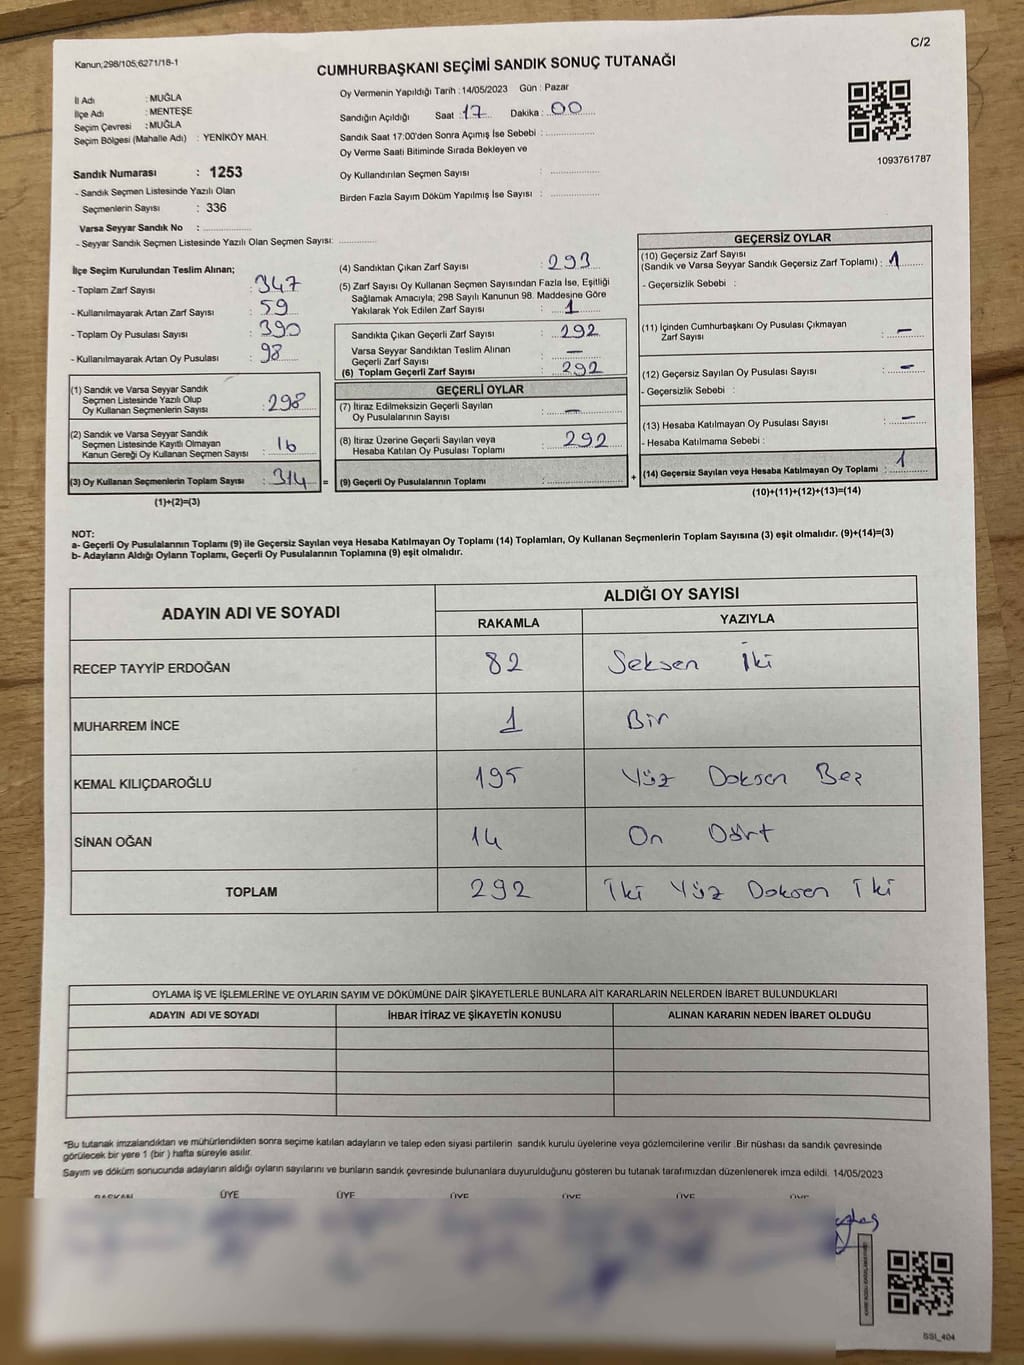 C/2
Kanun;298/105;6271/18-1
CUMHURBAŞKANI SEÇİMİ SANDIK SONUÇ TUTANAĞI
İl Adı : MUĞLA
İlçe Adı : MENTEŞE
Seçim Çevresi : MUĞLA
Seçim Bölgesi (Mahalle Adı) : YENİKÖY MAH.
Sandık Numarası : 1253
- Sandık Seçmen Listesinde Yazılı Olan
Seçmenlerin Sayısı : 336
Varsa Seyyar Sandık No :
- Seyyar Sandık Seçmen Listesinde Yazılı Olan Seçmen Sayısı:
Oy Vermenin Yapıldığı Tarih : 14/05/2023 Gün : Pazar
Sandığın Açıldığı Saat : 17 Dakika : 00
Sandık Saat 17:00'den Sonra Açımış İse Sebebi :
Oy Verme Saati Bitiminde Sırada Bekleyen ve
Oy Kullandırılan Seçmen Sayısı :
Birden Fazla Sayım Döküm Yapılmış İse Sayısı :
1093761787
İlçe Seçim Kurulundan Teslim Alınan;
- Toplam Zarf Sayısı : 347
- Kullanılmayarak Artan Zarf Sayısı : 59
- Toplam Oy Pusulası Sayısı : 390
- Kullanılmayarak Artan Oy Pusulası : 98
(1) Sandık ve Varsa Seyyar Sandık
Seçmen Listesinde Yazılı Olup
Oy Kullanan Seçmenlerin Sayısı : 298
(2) Sandık ve Varsa Seyyar Sandık
Seçmen Listesinde Kayıtlı Olmayan
Kanun Gereği Oy Kullanan Seçmen Sayısı : 16
(3) Oy Kullanan Seçmenlerin Toplam Sayısı : 314 =
(1)+(2)=(3)
(4) Sandıktan Çıkan Zarf Sayısı : 293
(5) Zarf Sayısı Oy Kullanan Seçmen Sayısından Fazla İse, Eşitliği
Sağlamak Amacıyla; 298 Sayılı Kanunun 98. Maddesine Göre
Yakılarak Yok Edilen Zarf Sayısı : 1
Sandıkta Çıkan Geçerli Zarf Sayısı : 292
Varsa Seyyar Sandıktan Teslim Alınan
Geçerli Zarf Sayısı : —
(6) Toplam Geçerli Zarf Sayısı : 292
GEÇERLİ OYLAR
(7) İtiraz Edilmeksizin Geçerli Sayılan
Oy Pusulalarının Sayısı : —
(8) İtiraz Üzerine Geçerli Sayılan veya
Hesaba Katılan Oy Pusulası Toplamı : 292
(9) Geçerli Oy Pusulalarının Toplamı : +
GEÇERSİZ OYLAR
(10) Geçersiz Zarf Sayısı
(Sandık ve Varsa Seyyar Sandık Geçersiz Zarf Toplamı) : 1
- Geçersizlik Sebebi :
(11) İçinden Cumhurbaşkanı Oy Pusulası Çıkmayan
Zarf Sayısı : —
(12) Geçersiz Sayılan Oy Pusulası Sayısı : —
- Geçersizlik Sebebi :
(13) Hesaba Katılmayan Oy Pusulası Sayısı : —
- Hesaba Katılmama Sebebi :
(14) Geçersiz Sayılan veya Hesaba Katılmayan Oy Toplamı : 1
(10)+(11)+(12)+(13)=(14)
NOT:
a- Geçerli Oy Pusulalarının Toplamı (9) ile Geçersiz Sayılan veya Hesaba Katılmayan Oy Toplamı (14) Toplamları, Oy Kullanan Seçmenlerin Toplam Sayısına (3) eşit olmalıdır. (9)+(14)=(3)
b- Adayların Aldığı Oyların Toplamı, Geçerli Oy Pusulalarının Toplamına (9) eşit olmalıdır.
ADAYIN ADI VE SOYADI
ALDIĞI OY SAYISI
RAKAMLA YAZIYLA
RECEP TAYYİP ERDOĞAN 82 Seksen İki
MUHARREM İNCE 1 Bir
KEMAL KILIÇDAROĞLU 195 Yüz Doksan Beş
SİNAN OĞAN 14 On Dört
TOPLAM 292 İki Yüz Doksan İki
OYLAMA İŞ VE İŞLEMLERİNE VE OYLARIN SAYIM VE DÖKÜMÜNE DAİR ŞİKAYETLERLE BUNLARA AİT KARARLARIN NELERDEN İBARET BULUNDUKLARI
ADAYIN ADI VE SOYADI İHBAR İTİRAZ VE ŞİKAYETİN KONUSU ALINAN KARARIN NEDEN İBARET OLDUĞU
"Bu tutanak imzalandıktan ve mühürlendikten sonra seçime katılan adayların ve talep eden siyasi partilerin sandık kurulu üyelerine veya gözlemcilerine verilir .Bir nüshası da sandık çevresinde
görülecek bir yere 1 (bir ) hafta süreyle asılır.
Sayım ve döküm sonucunda adayların aldığı oyların sayılarını ve bunların sandık çevresinde bulunanlara duyurulduğunu gösteren bu tutanak tarafımızdan düzenlenerek imza edildi. 14/05/2023
BAŞKAN ÜYE ÜYE ÜYE ÜYE ÜYE ÜYE
SSI_404